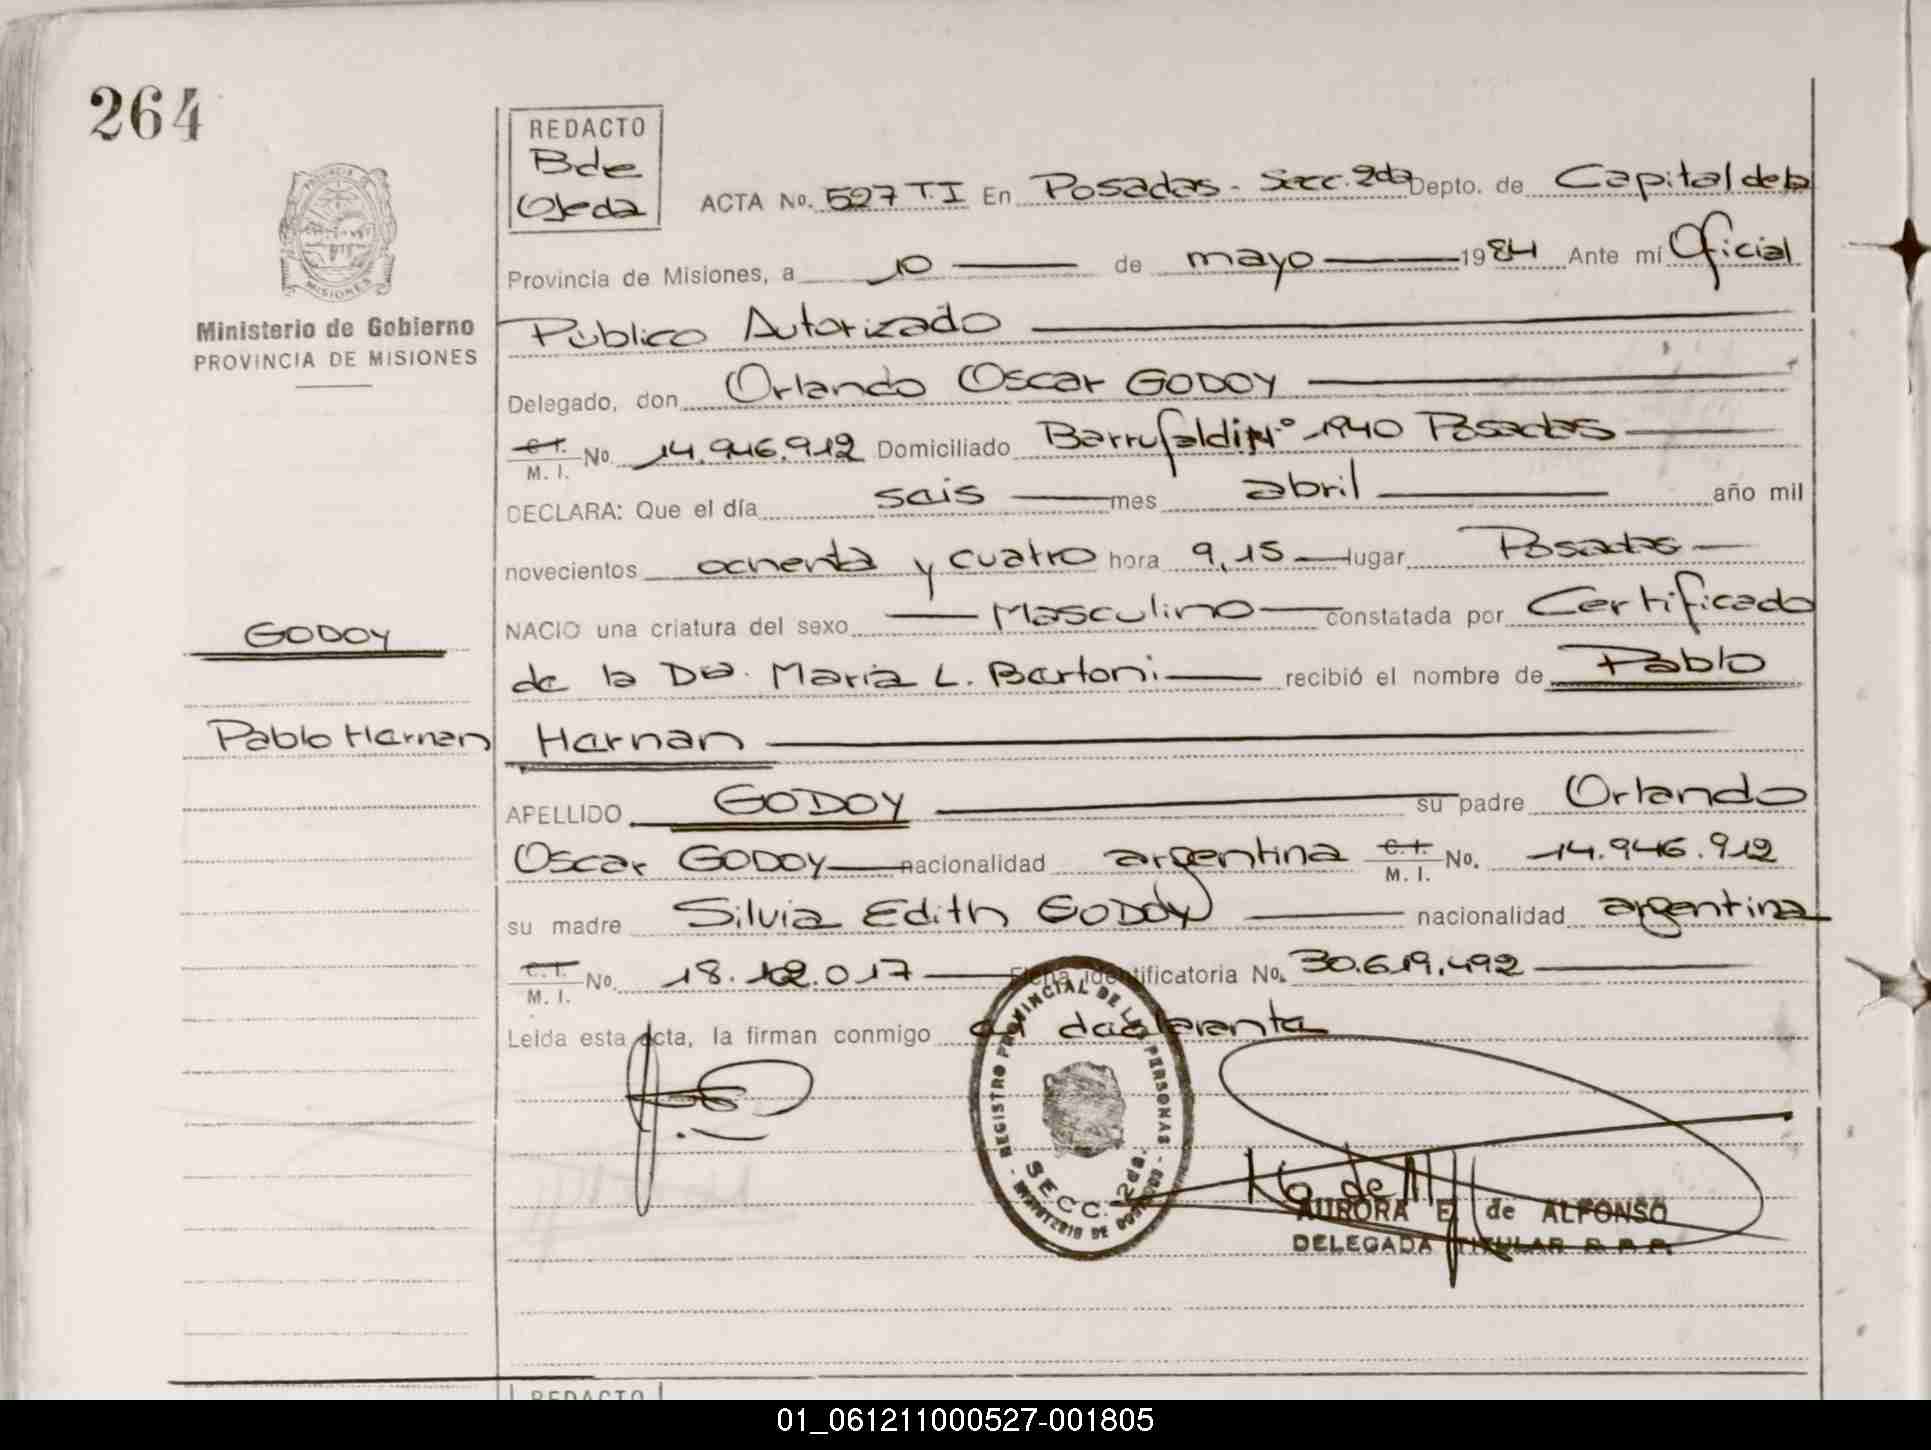 264
REDACTO
Bde
Ojeda
ACTA No. 527 T.I En Posadas - Secc. 2da Depto. de Capital de la
Provincia de Misiones, a 10 de mayo 1984 Ante mí Oficial
Ministerio de Gobierno
PROVINCIA DE MISIONES
MISIONES
Público Autorizado
Delegado, don Orlando Oscar GODOY
C. I. M. I. No. 14.946.912 Domiciliado Barrufaldi Nº 1940 Posadas
DECLARA: Que el día seis mes abril año mil
novecientos ochenta y cuatro hora 9,15 lugar Posadas
NACIO una criatura del sexo Masculino constatada por Certificado
GODOY
de la Dra. Maria L. Bertoni recibió el nombre de Pablo
Pablo Hernan
Hernan
APELLIDO GODOY su padre Orlando
Oscar GODOY nacionalidad argentina C. I. M. I. No. 14.946.912
su madre Silvia Edith GODOY nacionalidad argentina
C. I. M. I. No. 18.102.017 Ficha identificatoria No. 30.619.492
Leída esta acta, la firman conmigo el declarante
REGISTRO PROVINCIAL DE LAS PERSONAS
SECC. 2da.
MINISTERIO DE GOBIERNO
AURORA E. de ALFONSO
DELEGADA TITULAR R. P. P.
REDACTO
01_061211000527-001805